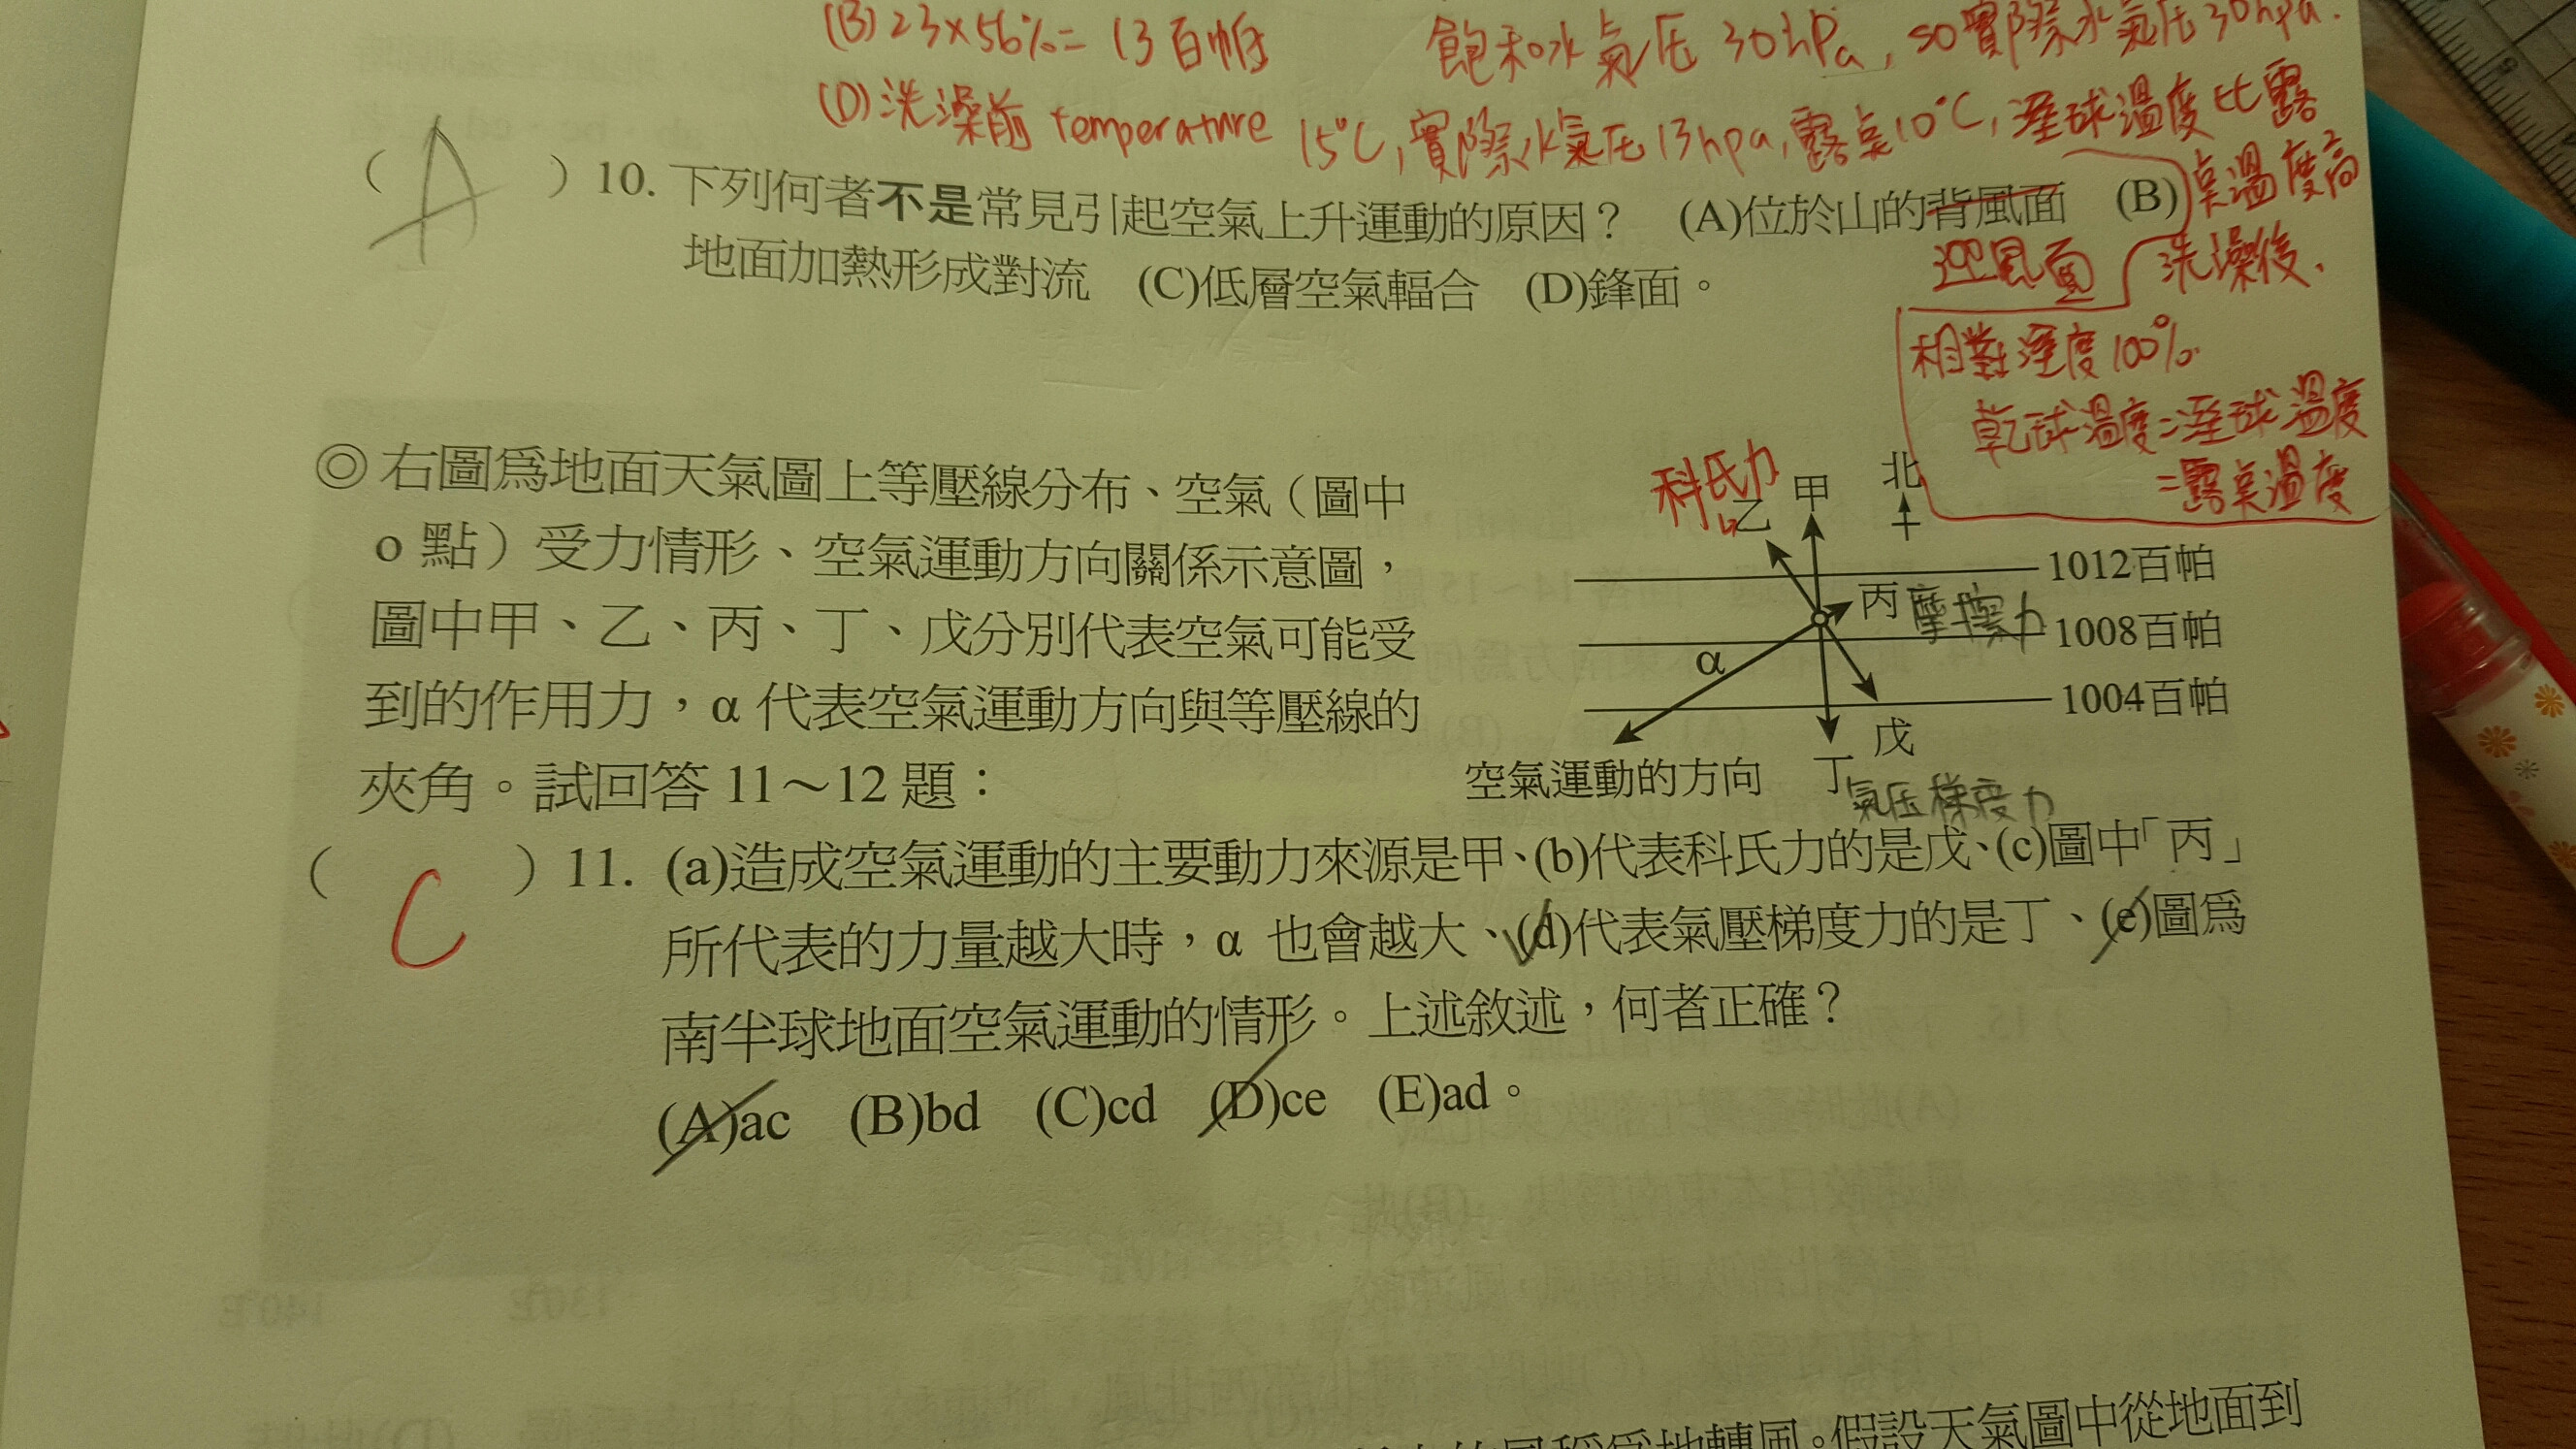 (B) 23×56%= 13百帕
飽和水氣压 30hPa, so實際水氣压30hpa.
(D)洗澡前 temperature 15°C, 實際水氣压13hpa, 露点10°C, 溼球溫度比露
点溫度高
( A ) 10. 下列何者不是常見引起空氣上升運動的原因？ (A)位於山的背風面 (B)
迎風面
洗澡後、
地面加熱形成對流 (C)低層空氣輻合 (D)鋒面。
相對溼度100%
乾球溫度=溼球溫度
=露点溫度
◎右圖為地面天氣圖上等壓線分布、空氣（圖中
o 點）受力情形、空氣運動方向關係示意圖，
圖中甲、乙、丙、丁、戊分別代表空氣可能受
到的作用力，α 代表空氣運動方向與等壓線的
夾角。試回答 11～12 題：
科氏力
乙
甲
北
1012百帕
丙 摩擦力
1008百帕
α
1004百帕
戊
空氣運動的方向
丁 氣压梯度力
( C ) 11. (a)造成空氣運動的主要動力來源是甲、(b)代表科氏力的是戊、(c)圖中「丙」
所代表的力量越大時，α 也會越大、(d)代表氣壓梯度力的是丁、(e)圖為
南半球地面空氣運動的情形。上述敘述，何者正確？
(A)ac (B)bd (C)cd (D)ce (E)ad。
假設天氣圖中從地面到